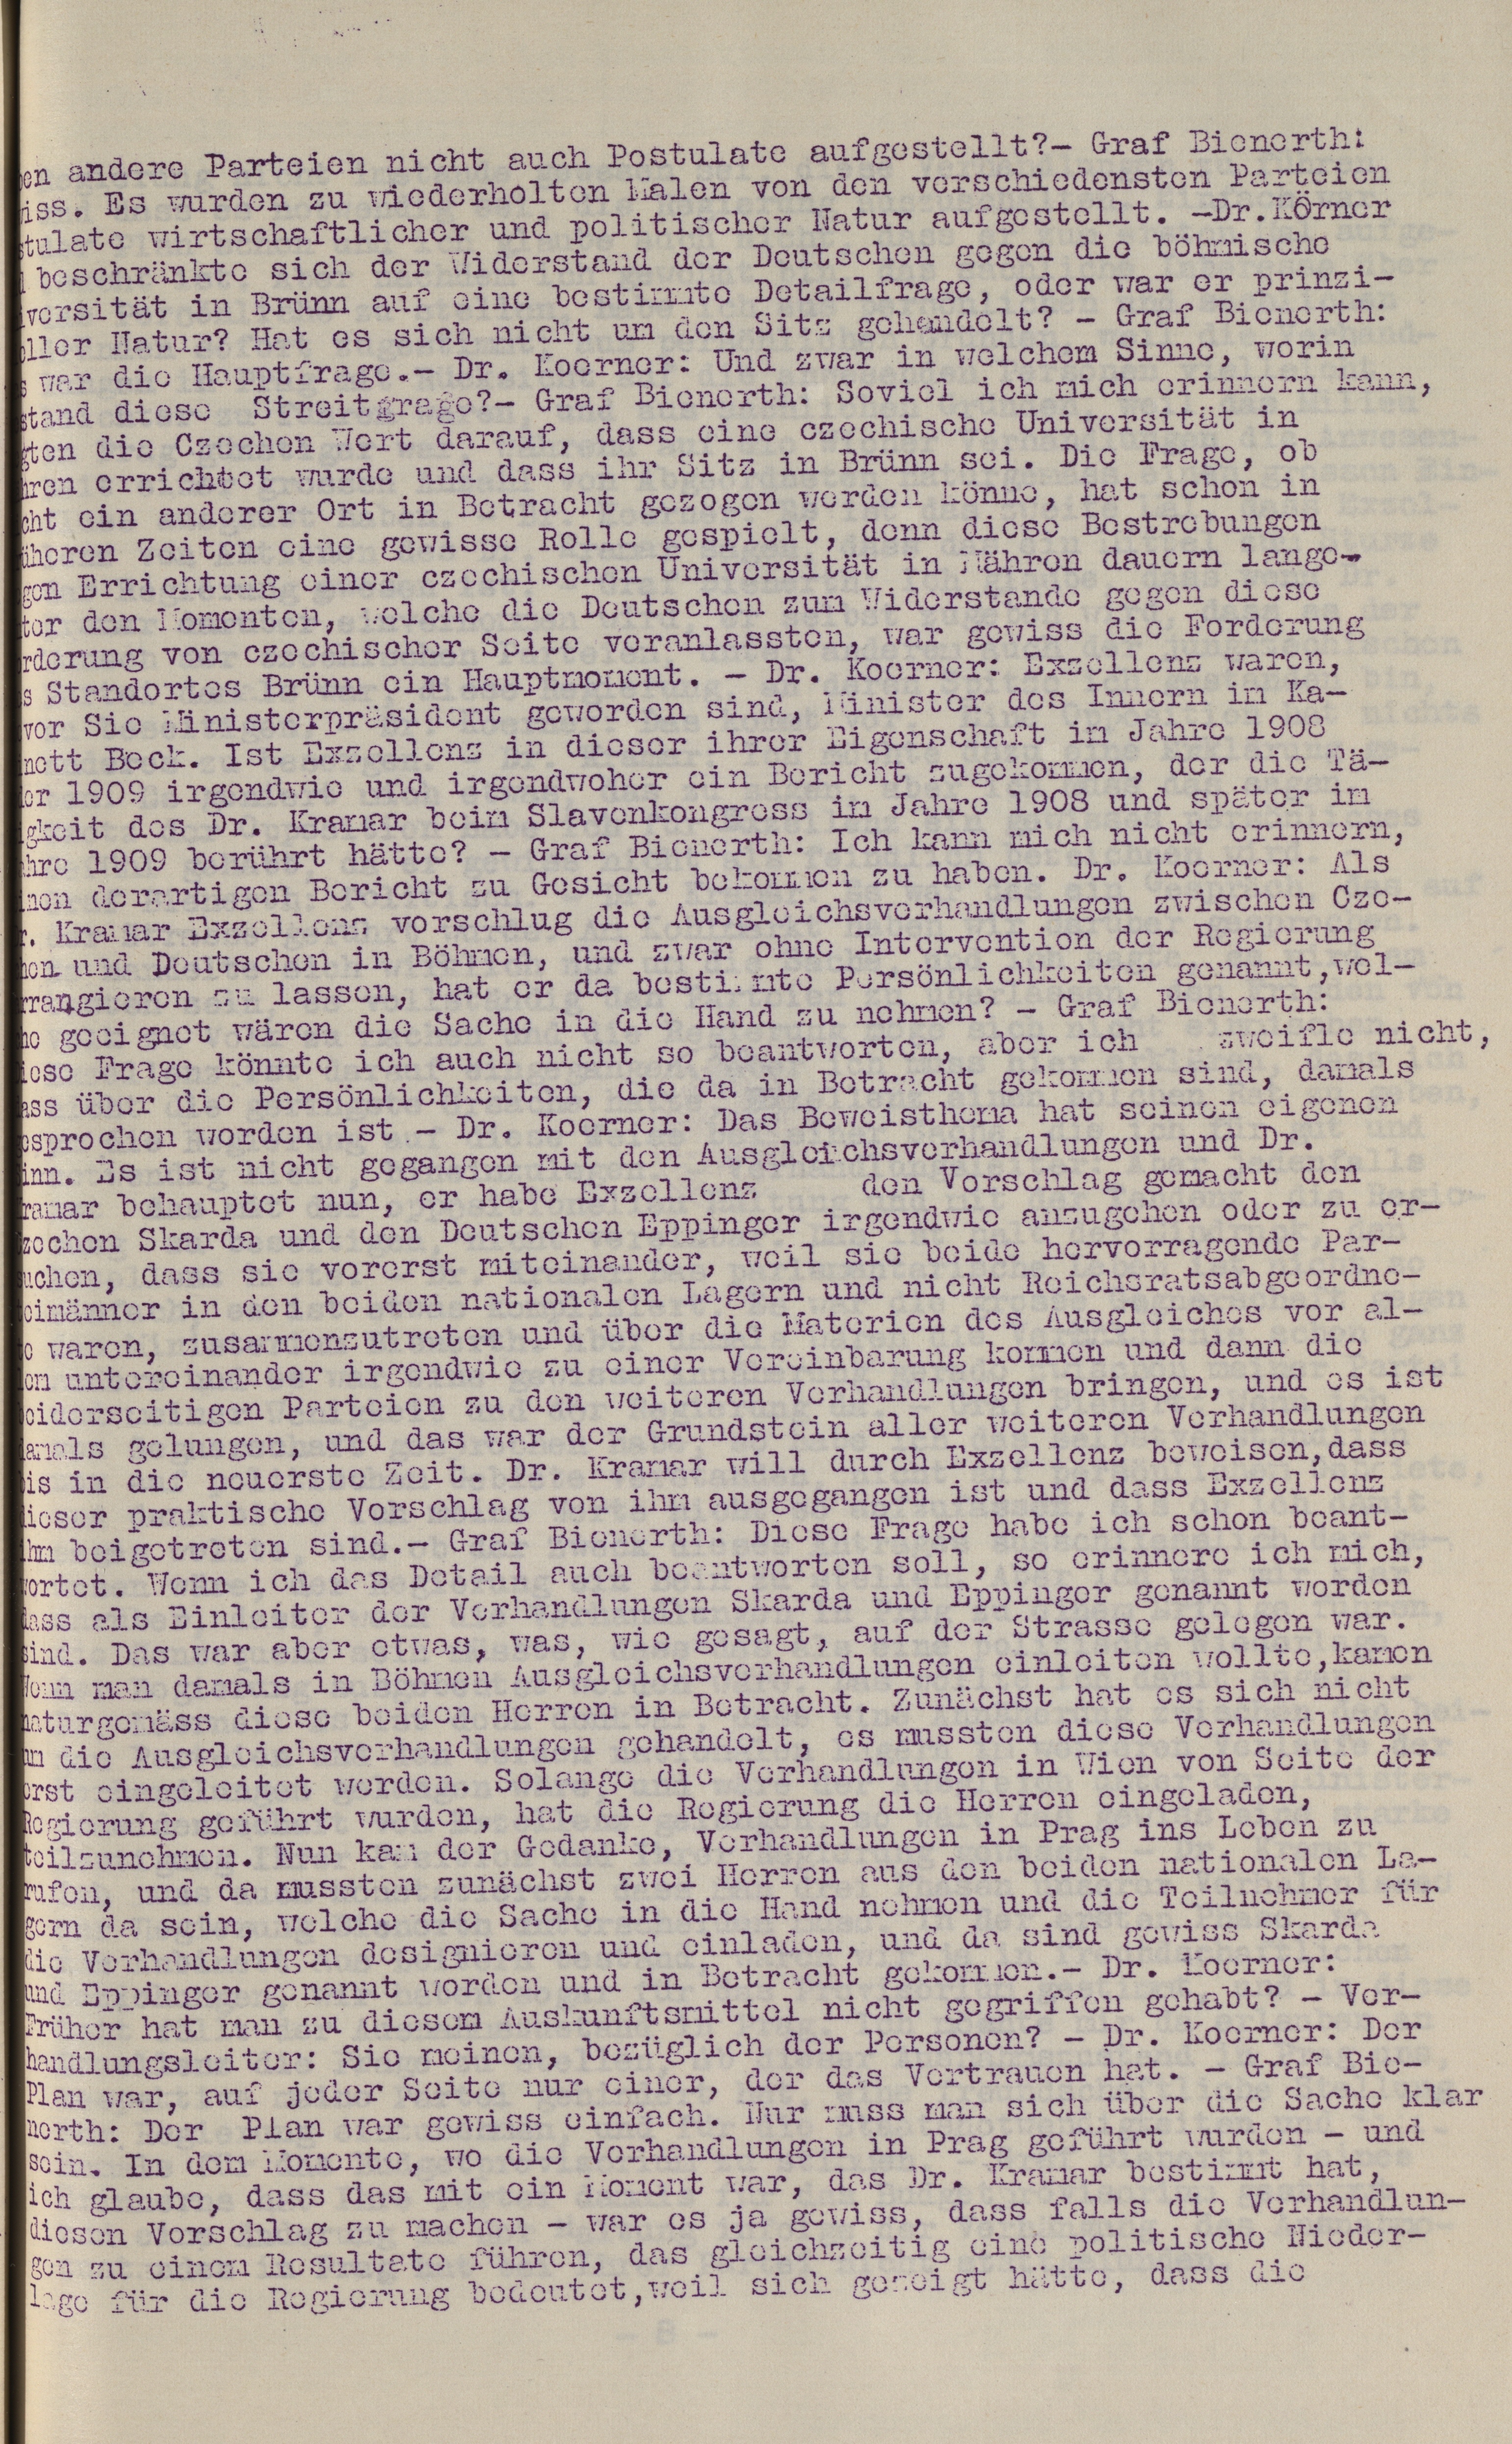 en andere Parteien nicht auch Postulate aufgestellt?- Graf Bienerth:
iss. Es wurden zu wiederholten Malen von den verschiedensten Parteien
tulate wirtschaftlicher und politischer Natur aufgestellt. -Dr.Körner
beschränkte sich der Widerstand der Deutschen gegen die böhmische
versität in Brünn auf eine bestimmte Detailfrage, oder war er prinzi-
eller Natur? Hat es sich nicht um den Sitz gehandelt? - Graf Bienerth:
s war die Hauptfrage.- Dr. Koerner: Und zwar in welchem Sinne, worin
stand diese Streitgrage?- Graf Bienerth: Soviel ich mich erinnern kann,
gten die Czechen Wert darauf, dass eine czechische Universität in
hren errichtet wurde und dass ihr Sitz in Brünn sei. Die Frage, ob
cht ein anderer Ort in Betracht gezogen werden könne, hat schon in
üheren Zeiten eine gewisse Rolle gespielt, denn diese Bestrebungen
gen Errichtung einer czechischen Universität in Mähren dauern lange-
ter den Momenten, welche die Deutschen zum Widerstande gegen diese
rderung von czechischer Seite veranlassten, war gewiss die Forderung
s Standortes Brünn ein Hauptmoment. - Dr. Koerner: Exzellenz waren,
vor Sie Ministerpräsident geworden sind, Minister des Innern im Ka-
nett Beck. Ist Exzellenz in dieser ihrer Eigenschaft im Jahre 1908
er 1909 irgendwie und irgendwoher ein Bericht zugekommen, der die Tä-
gkeit des Dr. Kramar beim Slavenkongress im Jahre 1908 und später im
hre 1909 berührt hätte? - Graf Bienerth: Ich kann mich nicht erinnern,
nen derartigen Bericht zu Gesicht bekommen zu haben. Dr. Koerner: Als
r. Kramar Exzellenz vorschlug die Ausgleichsverhandlungen zwischen Cze-
hen und Deutschen in Böhmen, und zwar ohne Intervention der Regierung
rrangieren zu lassen, hat er da bestimmte Persönlichkeiten genannt,wel-
he geeignet wären die Sache in die Hand zu nehmen? - Graf Bienerth:
iese Frage könnte ich auch nicht so beantworten, aber ich zweifle nicht,
ass über die Persönlichkeiten, die da in Betracht gekommen sind, damals
esprochen worden ist.- Dr. Koerner: Das Beweisthema hat seinen eigenen
inn. Es ist nicht gegangen mit den Ausgleichsverhandlungen und Dr.
ramar behauptet nun, er habe Exzellenz den Vorschlag gemacht den
zechen Skarda und den Deutschen Eppinger irgendwie anzugehen oder zu er-
uchen, dass sie vorerst miteinander, weil sie beide hervorragende Par-
eimänner in den beiden nationalen Lagern und nicht Reichsratsabgeordne-
e waren, zusammenzutreten und über die Materien des Ausgleiches vor al-
em untereinander irgendwie zu einer Vereinbarung kommen und dann die
eiderseitigen Parteien zu den weiteren Verhandlungen bringen, und es ist
amals gelungen, und das war der Grundstein aller weiteren Verhandlungen
is in die neuerste Zeit. Dr. Kramar will durch Exzellenz beweisen,dass
ieser praktische Vorschlag von ihm ausgegangen ist und dass Exzellenz
ihm beigetreten sind.- Graf Bienerth: Diese Frage habe ich schon beant-
wortet. Wenn ich das Detail auch beantworten soll, so erinnere ich mich,
dass als Einleiter der Verhandlungen Skarda und Eppinger genannt worden
sind. Das war aber etwas, was, wie gesagt, auf der Strasse gelegen war.
Wenn man damals in Böhmen Ausgleichsverhandlungen einleiten wollte,kamen
naturgemäss diese beiden Herren in Betracht. Zunächst hat es sich nicht
um die Ausgleichsverhandlungen gehandelt, es mussten diese Verhandlungen
erst eingeleitet werden. Solange die Verhandlungen in Wien von Seite der
Regierung geführt wurden, hat die Regierung die Herren eingeladen,
teilzunehmen. Nun kam der Gedanke, Verhandlungen in Prag ins Leben zu
rufen, und da mussten zunächst zwei Herren aus den beiden nationalen La-
gern da sein, welche die Sache in die Hand nehmen und die Teilnehmer für
die Verhandlungen designieren und einladen, und da sind gewiss Skarda
und Eppinger genannt worden und in Betracht gekommen.- Dr. Koerner:
Früher hat man zu diesem Auskunftsmittel nicht gegriffen gehabt? - Ver-
handlungsleiter: Sie meinen, bezüglich der Personen? - Dr. Koerner: Der
Plan war, auf jeder Seite nur einer, der das Vertrauen hat. - Graf Bie-
nerth: Der Plan war gewiss einfach. Nur muss man sich über die Sache klar
sein. In dem Momente, wo die Verhandlungen in Prag geführt wurden - und
ich glaube, dass das mit ein Moment war, das Dr. Kramar bestimmt hat,
diesen Vorschlag zu machen - war es ja gewiss, dass falls die Verhandlun-
gen zu einem Resultate führen, das gleichzeitig eine politische Nieder-
lage für die Regierung bedeutet,weil sich gezeigt hätte, dass die